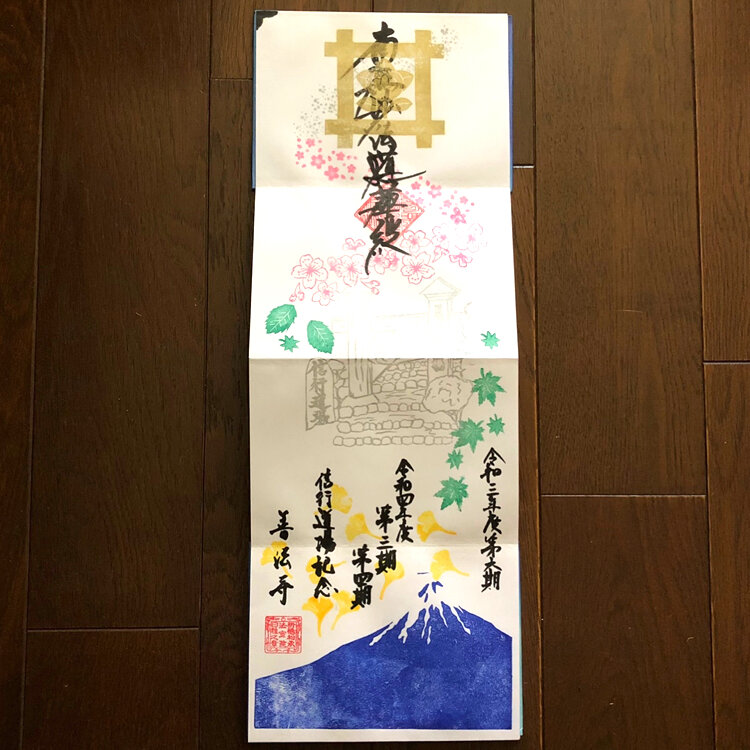 南無妙法蓮華経
信行道場
令和三年度第六期
令和四年度
第三期
第四期
信行道場記念
善法寺